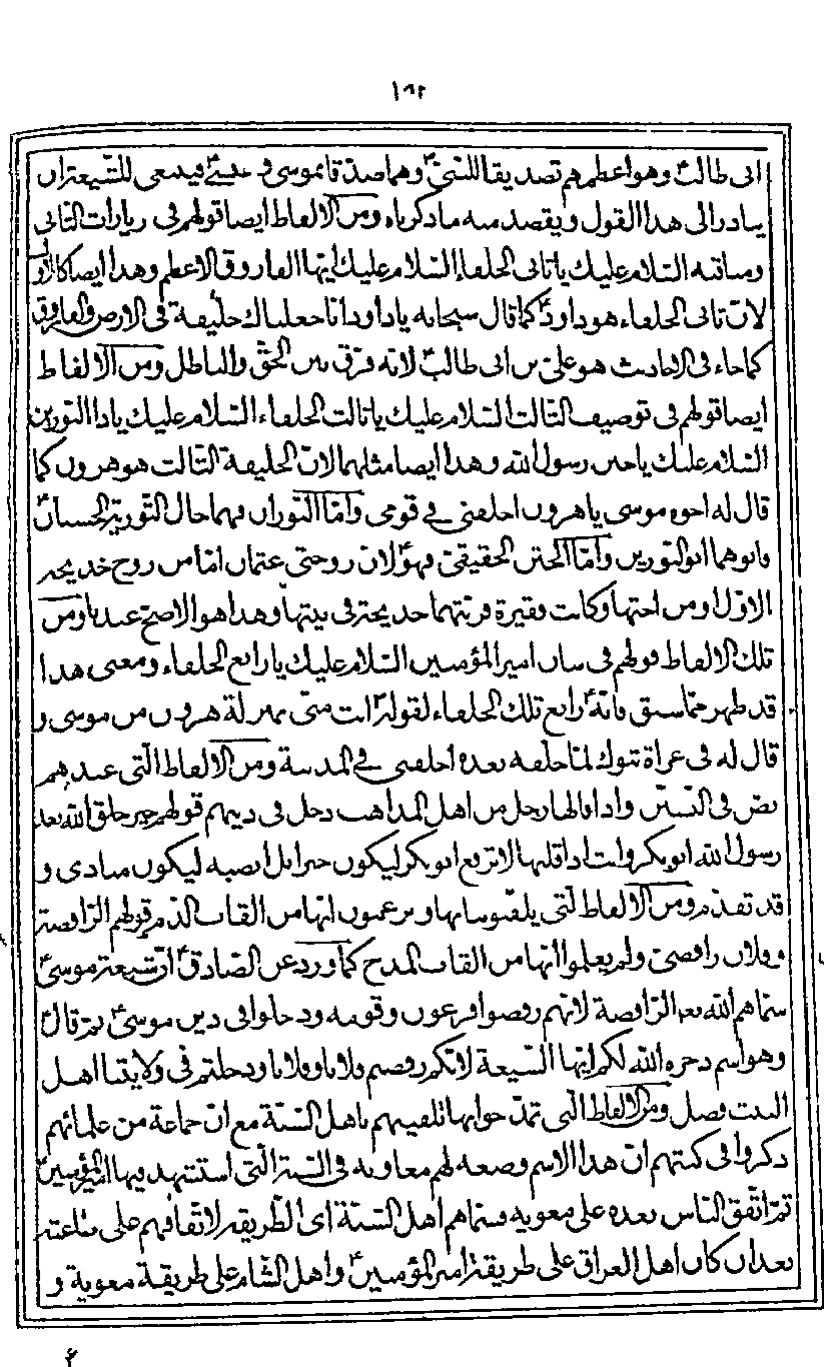 ١٨٢
ابى طالب ع وهو اعظمهم تصديقا للنبى ع وهما صدقا موسى فى فينبغى للشيعة ان
يبادر الى هذا القول ويقصد منه ما ذكرناه ومن الالفاظ ايضا قولهم فى زيارات الثانى
السلام عليك يا ثانى الخلفاء السلام عليك ايها الفاروق الاعظم وهذا ايضا كالاول
لان ثانى الخلفاء هو داود ع كما قال سبحانه يا داود انا جعلناك خليفة فى الارض والفاروق
كما جاء فى الاحاديث هو على بن ابى طالب ع لانه فرق بين الحق والباطل ومن الالفاظ
ايضا قولهم فى توصيف الثالث السلام عليك يا ثالث الخلفاء السلام عليك يا ذا النورين
السلام عليك يا ختن رسول الله وهذا ايضا مثلهما لان الخليفة الثالث هو هرون كما
قال له اخوه موسى يا هرون اخلفنى فى قومى واما النوران فهما حال التورية الحسنان ع
وابوهما ابو النورين واما الختن الحقيقى فهو ع لان زوجتى عثمان اما من زوج خديجه
الاول او من اختها وكانت فقيرة فربتهما خديجة فى بيتها وهذا هو الاصح عندنا ومن
تلك الالفاظ قولهم فى شان امير المؤمنين السلام عليك يا رابع الخلفاء ومعنى هذا
قد ظهر مما سبق فانه ع رابع تلك الخلفاء لقوله ع انت منى بمنزلة هرون من موسى و
قال له فى غزاة تبوك لما خلفه بعده اخلفنى فى المدينة ومن الالفاظ التى عندهم
نص فى التسنن واذا قالها رجل من اهل المذاهب دخل فى دينهم قولهم خير خلق الله بعد
رسول الله ابو بكر وانت اذا قلتها لا ترفع ابو بكر ليكون خبرا بل انصبه ليكون منادى و
قد تقدم ومن الالفاظ التى يلقبوننا بها ويزعمون انها من القاب الذم قولهم الرافضة
وفلان رافضى ولم يعلموا انها من القاب المدح كما ورد عن الصادق ع ان شيعة موسى ع
سماهم الله بعد الرافضة لانهم رفضوا فرعون وقومه ودخلوا فى دين موسى ع ثم قال ع
وهو اسم ذخره الله لكم ايها الشيعة لانكم رفضتم فلانا وفلانا ودخلتم فى ولايتنا اهل
البيت فصل ومن الالفاظ التى تمد حوابها تلقيبهم باهل السنة مع ان جماعة من علمائهم
ذكروا فى كتبهم ان هذا الاسم وضعه لهم معاوية فى السنة التى استشهد فيها امير المؤمنين ع
ثم اتفق الناس بعده على معوية فسماهم اهل السنة اى الطريقه لاتفاقهم على متابعته
بعد ان كان اهل العراق على طريقة امير المؤمنين ع واهل الشام على طريقة معوية و